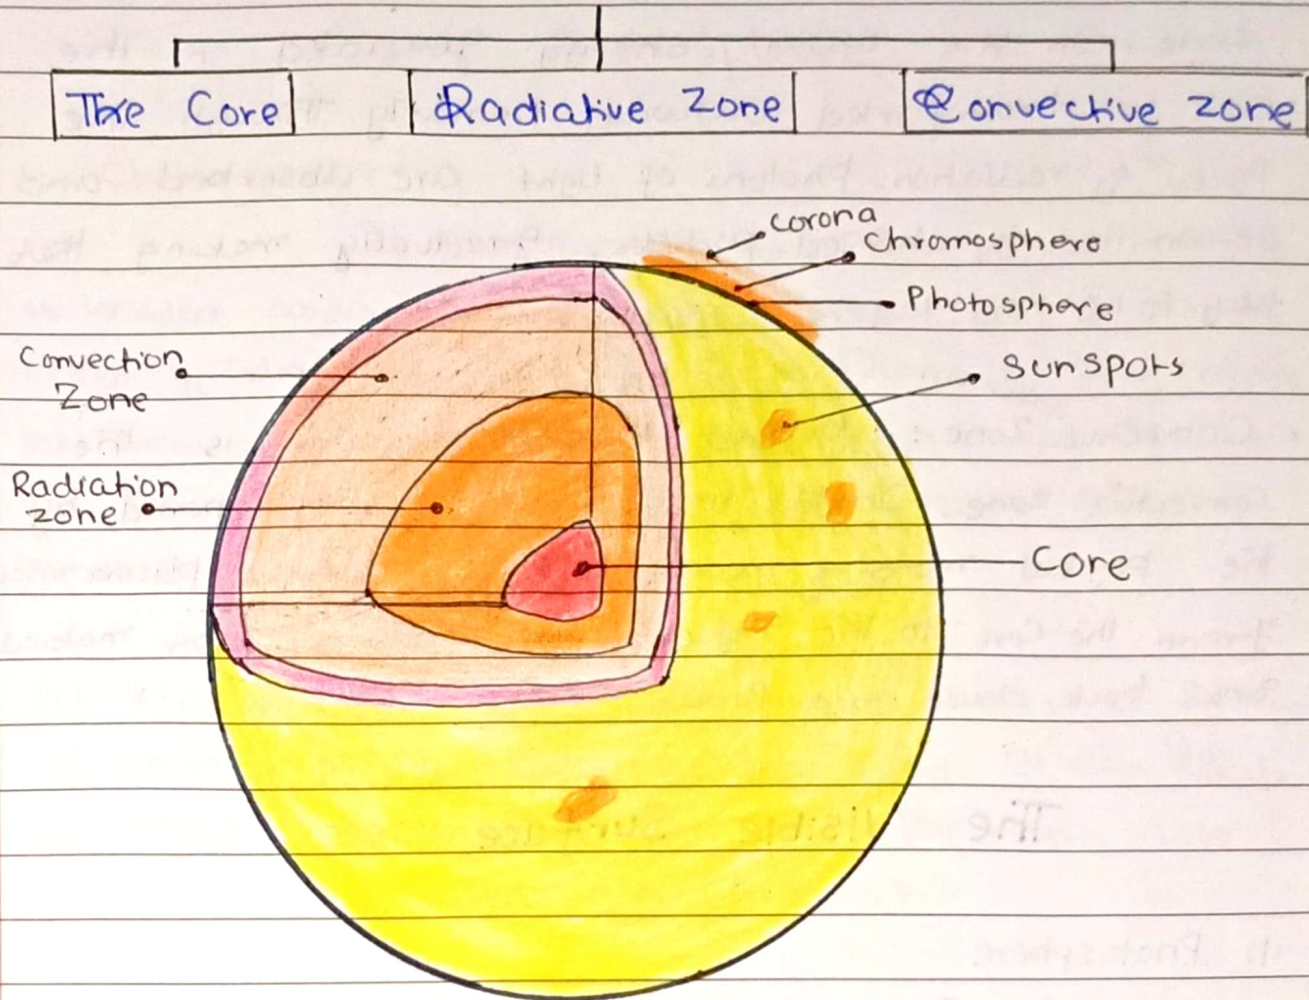 The Core
Radiative Zone
Convective zone
Corona
Chromosphere
Photosphere
Sunspots
Convection
Zone
Radiation
zone
Core